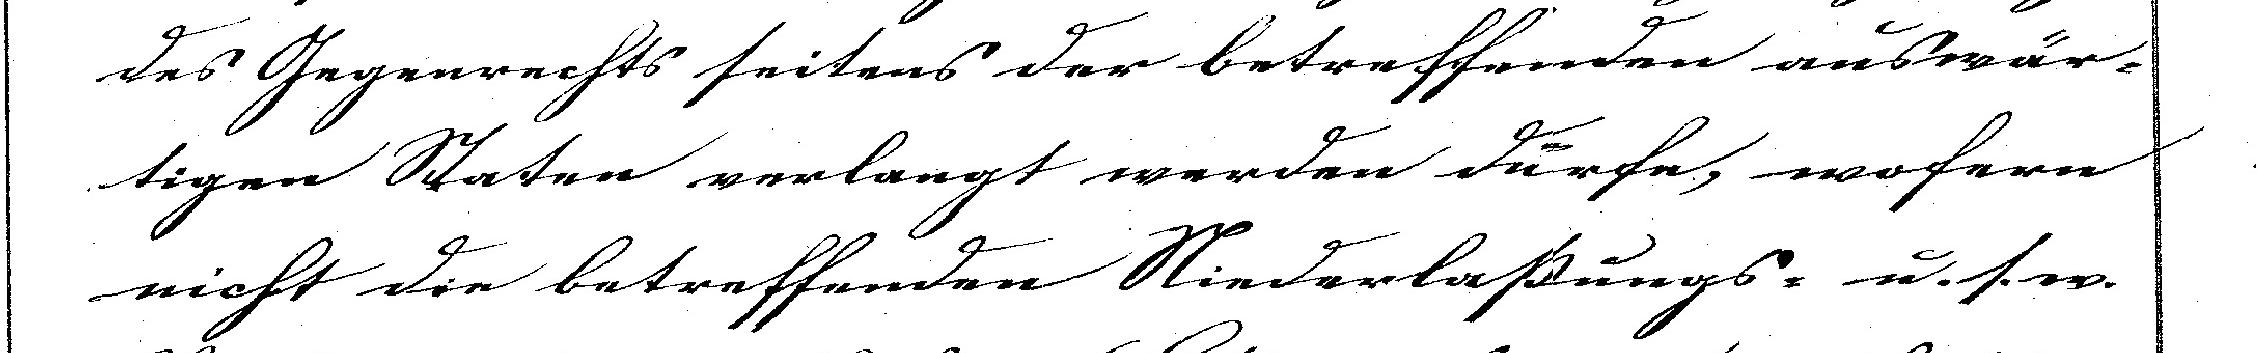 des Gegenrechts seitens der betreffenden auswär-
tigen Staten verlangt werden dürfe, wofern
nicht die betreffenden Niederlaßungs- u. s. w.